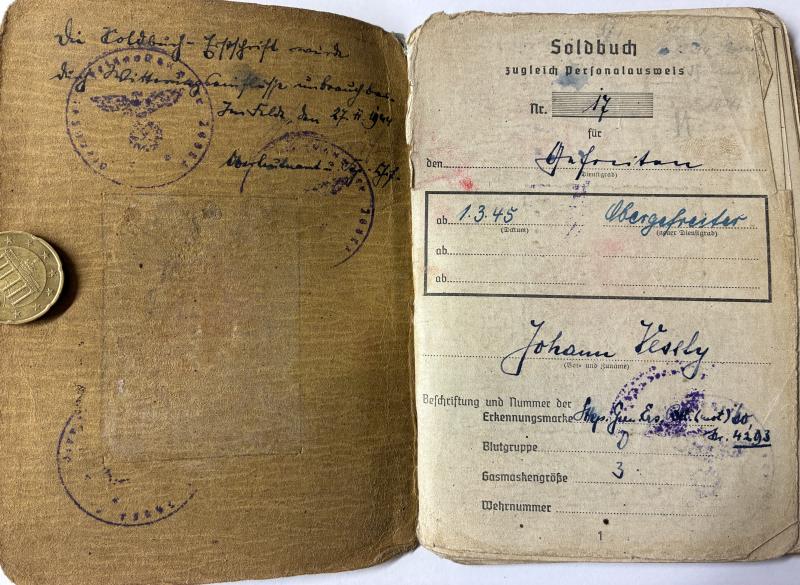 Die Soldbuch-Erstschrift wurde
durch Witterungseinflüsse unbrauchbar.
Im Felde, den 27. 11. 1944
Oberleutnant
Soldbuch
zugleich Personalausweis
Nr. 17
für
den Gefreiten
(Dienstgrad)
ab 1.3.45 Obergefreiter
(Datum) (neuer Dienstgrad)
ab
ab
Johann Vesely
(Vor- und Zuname)
Beschriftung und Nummer der
Erkennungsmarke (mot) 20,
Nr. 4293
Blutgruppe
Gasmaskengröße 3
Wehrnummer
1